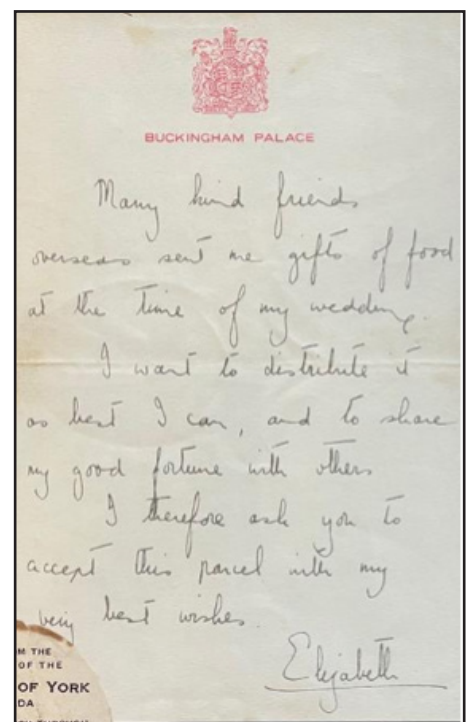 BUCKINGHAM PALACE
Many kind friends
overseas sent me gifts of food
at the time of my wedding.
I want to distribute it
as best I can, and to share
my good fortune with others
I therefore ask you to
accept this parcel with my
very best wishes.
Elizabeth
M THE
OF THE
OF YORK
DA